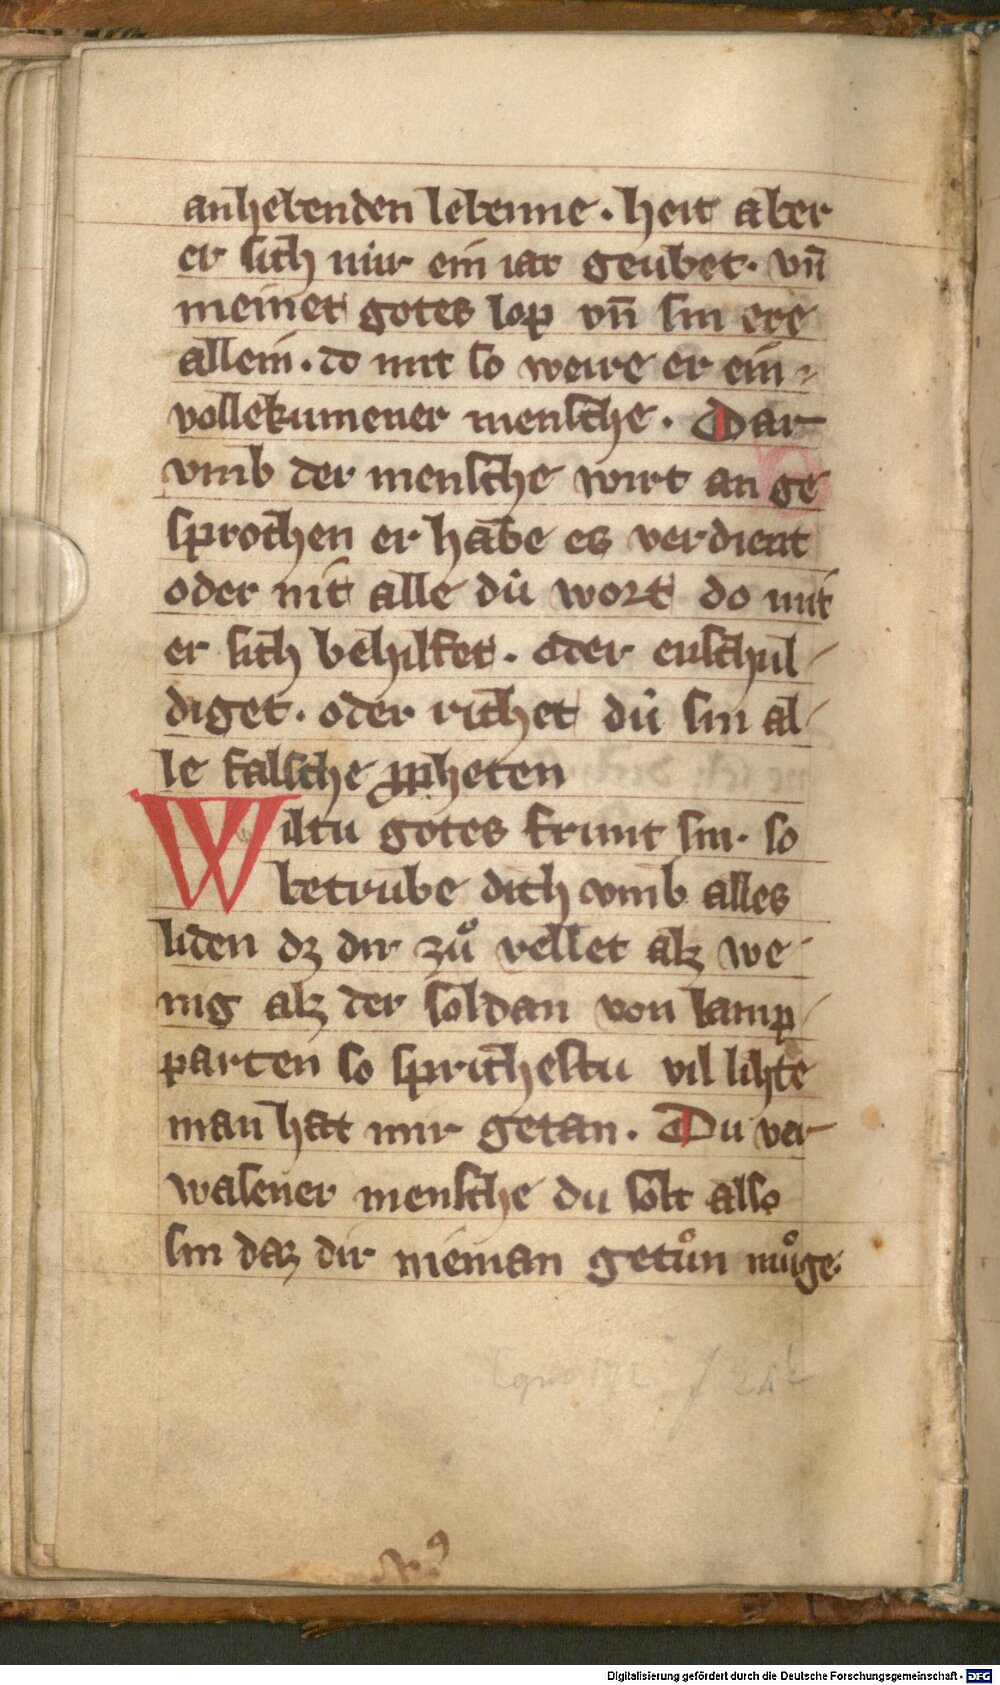 anhebenden lebenne · heit aber
er sich niur ein iar geubet · vn̄
meinet gotes lop vn̄ sin ere
allein · do mit so weire er ein
vollekumener mensche · Dar
vmb der mensche wirt an ge
sprochen er habe es verdient
oder nit alle dů wort do mit
er sich behilfet · oder enschul
diget · oder richet dů sin al
le falsche ꝓpheten
Wiltu gotes frunt sin · so
betrube dich vmb alles
liden dz dir zů vellet alz we
nig alz der soldan von lamp
parten so sprichestu vil lihte
man hat mir getan · Du ver
wasener mensche du solt also
sin daz dir nieman getůn můge ·
Digitalisierung gefördert durch die Deutsche Forschungsgemeinschaft - DFG